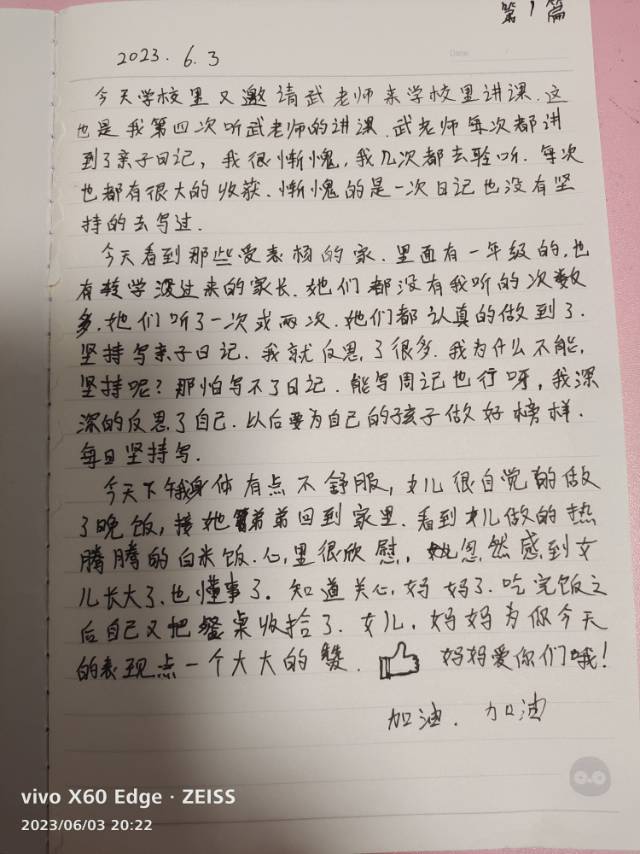 第1篇
Date
2023.6.3
今天学校里又邀请武老师来学校里讲课.这
也是我第四次听武老师的讲课.武老师每次都讲
到了亲子日记，我很惭愧，我几次都去聆听.每次
也都有很大的收获.惭愧的是一次日记也没有坚
持的去写过.
今天看到那些受表杨的家.里面有一年级的.也
有转学没过来的家长.她们都没有我听的次数
多.她们听了一次或两次.她们都认真的做到了.
坚持写亲子日记.我就反思了很多.我为什么不能,
坚持呢?那怕写不了日记.能写周记也行呀，我深
深的反思了自己.以后要为自己的孩子做好榜样.
每日坚持写.
今天下午我身体有点不舒服，女儿很自觉的做
了晚饭，接她弟弟回到家里.看到女儿做的热
腾腾的白米饭.心里很欣慰，忽然感到女
儿长大了.也懂事了.知道关心妈妈了.吃完饭之
后自己又把餐桌收拾了.女儿，妈妈为你今天
的表现点一个大大的赞.妈妈爱你们哦!
加油.加油
vivo X60 Edge · ZEISS
2023/06/03 20:22